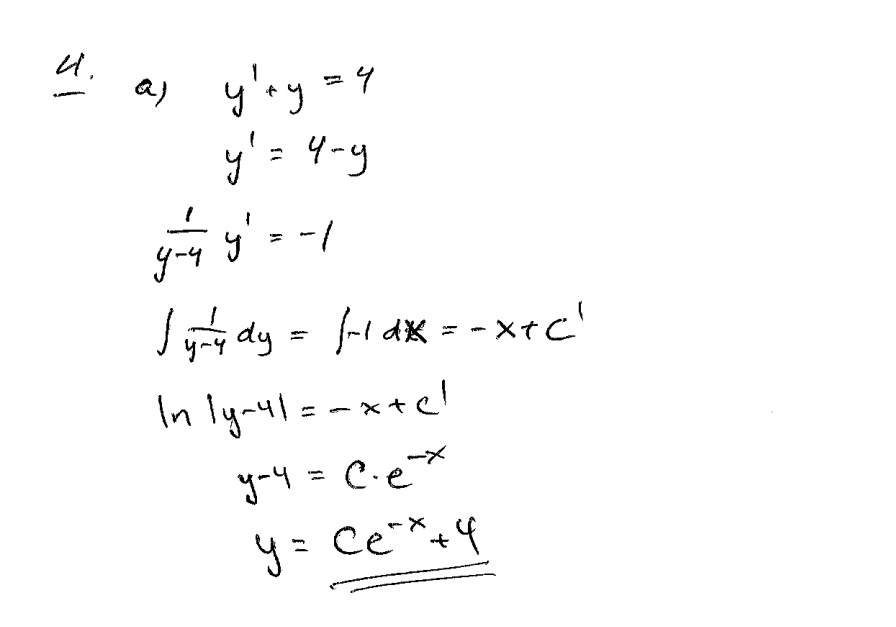 4. a) y' + y = 4
y' = 4-y
1/(y-4) y' = -1
∫ 1/(y-4) dy = ∫-1 dx = -x+C'
ln |y-4| = -x+c'
y-4 = C·e^-x
y = Ce^-x + 4